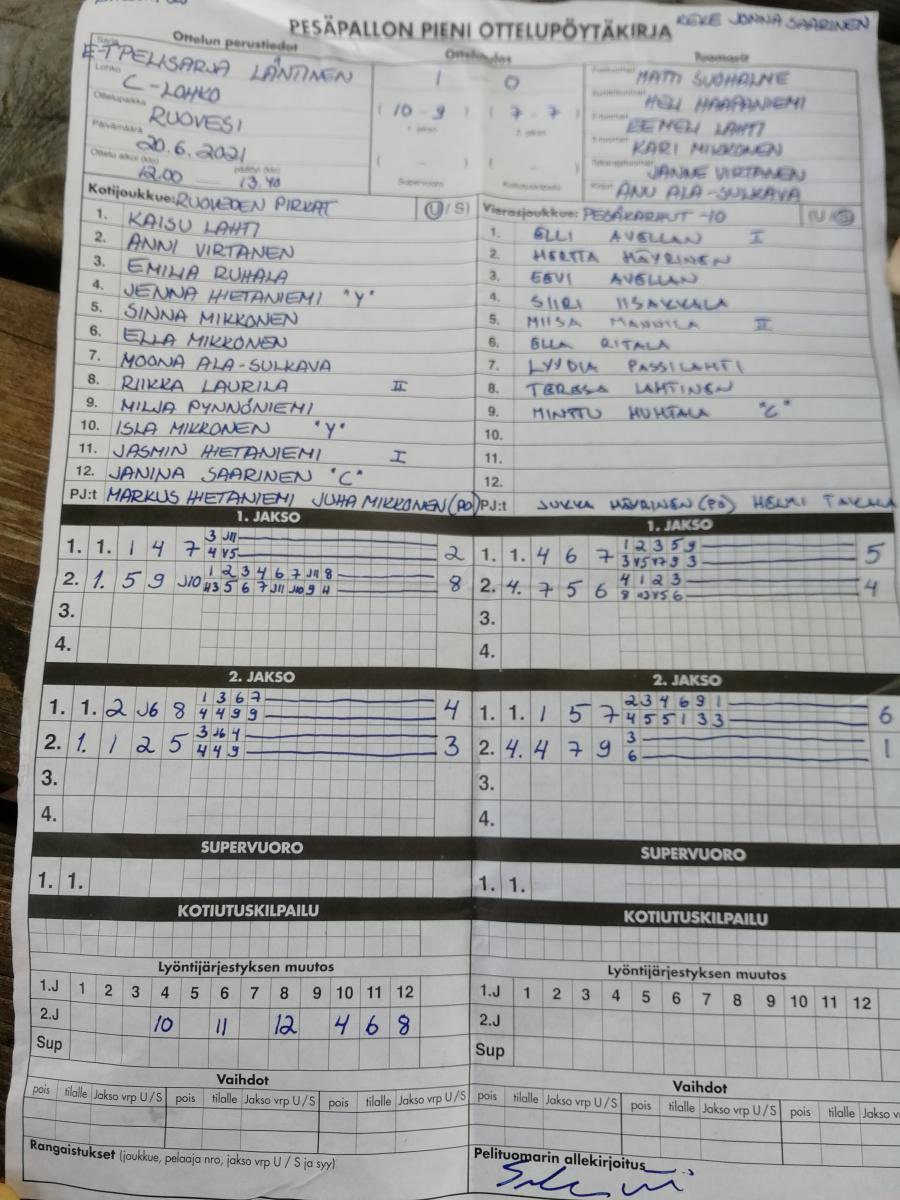 PESÄPALLON PIENI OTTELUPÖYTÄKIRJA KEKE JONNA SAARINEN
Ottelun perustiedot
Sarja E-TPELISARJA LÄNTINEN
Lohko C-LOHKO
Ottelupaikka RUOVESI
Päivämäärä 20.6.2021
Ottelu alkoi (klo) 12.00 päättyi (klo) 13.40
Ottelutulos
1 0
( 10 - 9 ) ( 7 - 7 )
1. jakso 2. jakso
( - ) ( - )
Supervuoro Kotiutuskilpailu
Tuomarit
MATTI SUOHALME
HELI HAAPANIEMI
EEMELI LAHTI
KARI MIKKONEN
JANNE VIRTANEN
ANU ALA-SULKAVA
Kotijoukkue: RUOVEDEN PIRKAT (U/S)
1. KAISU LAHTI
2. ANNI VIRTANEN
3. EMILIA RUHALA
4. JENNA HIETANIEMI "Y"
5. SINNA MIKKONEN
6. ELLA MIKKONEN
7. MOONA ALA-SULKAVA
8. RIIKKA LAURILA II
9. MILJA PYNNÖNIEMI
10. ISLA MIKKONEN "Y"
11. JASMIN HIETANIEMI I
12. JANINA SAARINEN "C"
PJ:t MARKUS HIETANIEMI JUHA MIKKONEN (PÖ)
Vierasjoukkue: PESÄKARHUT -10 (U/S)
1. ELLI AVELLAN I
2. HERTTA HÄYRINEN
3. EEVI AVELLAN
4. SIIRI IISAKKALA
5. MIISA MANNILA II
6. ELLA RITALA
7. LYYDIA PASSILAHTI
8. TERESA LAHTINEN
9. MINTTU HUHTALA "C"
10.
11.
12.
PJ:t JUKKA HÄYRINEN (PÖ) HELMI
1. JAKSO
1. 1. 1 4 7 3 J11 2
4 V5
2. 1. 5 9 J10 1 2 3 4 6 7 J11 8 8
5 6 7 J11 J10 9 4
3.
4.
1. JAKSO
1. 1. 4 6 7 1 2 3 5 9 5
3 V5 V7 9 3
2. 4. 7 5 6 4 1 2 3 4
8 V5 6
3.
4.
2. JAKSO
1. 1. 2 J6 8 1 3 6 7 4
4 4 9 9
2. 1. 1 2 5 3 J6 4 3
4 4 9
3.
4.
2. JAKSO
1. 1. 1 5 7 2 3 4 6 9 1 6
4 5 5 1 3 3
2. 4. 4 7 9 3 1
6
3.
4.
SUPERVUORO
1. 1.
SUPERVUORO
1. 1.
KOTIUTUSKILPAILU
KOTIUTUSKILPAILU
Lyöntijärjestyksen muutos
1.J 1 2 3 4 5 6 7 8 9 10 11 12
2.J 10 11 12 4 6 8
Sup
Lyöntijärjestyksen muutos
1.J 1 2 3 4 5 6 7 8 9 10 11 12
2.J
Sup
Vaihdot
pois tilalle Jakso vrp U/S pois tilalle Jakso vrp U/S pois tilalle Jakso vrp U/S
Vaihdot
pois tilalle Jakso vrp U/S pois tilalle Jakso vrp U/S pois tilalle
Rangaistukset (joukkue, pelaaja nro, jakso vrp U / S ja syy)
Pelituomarin allekirjoitus